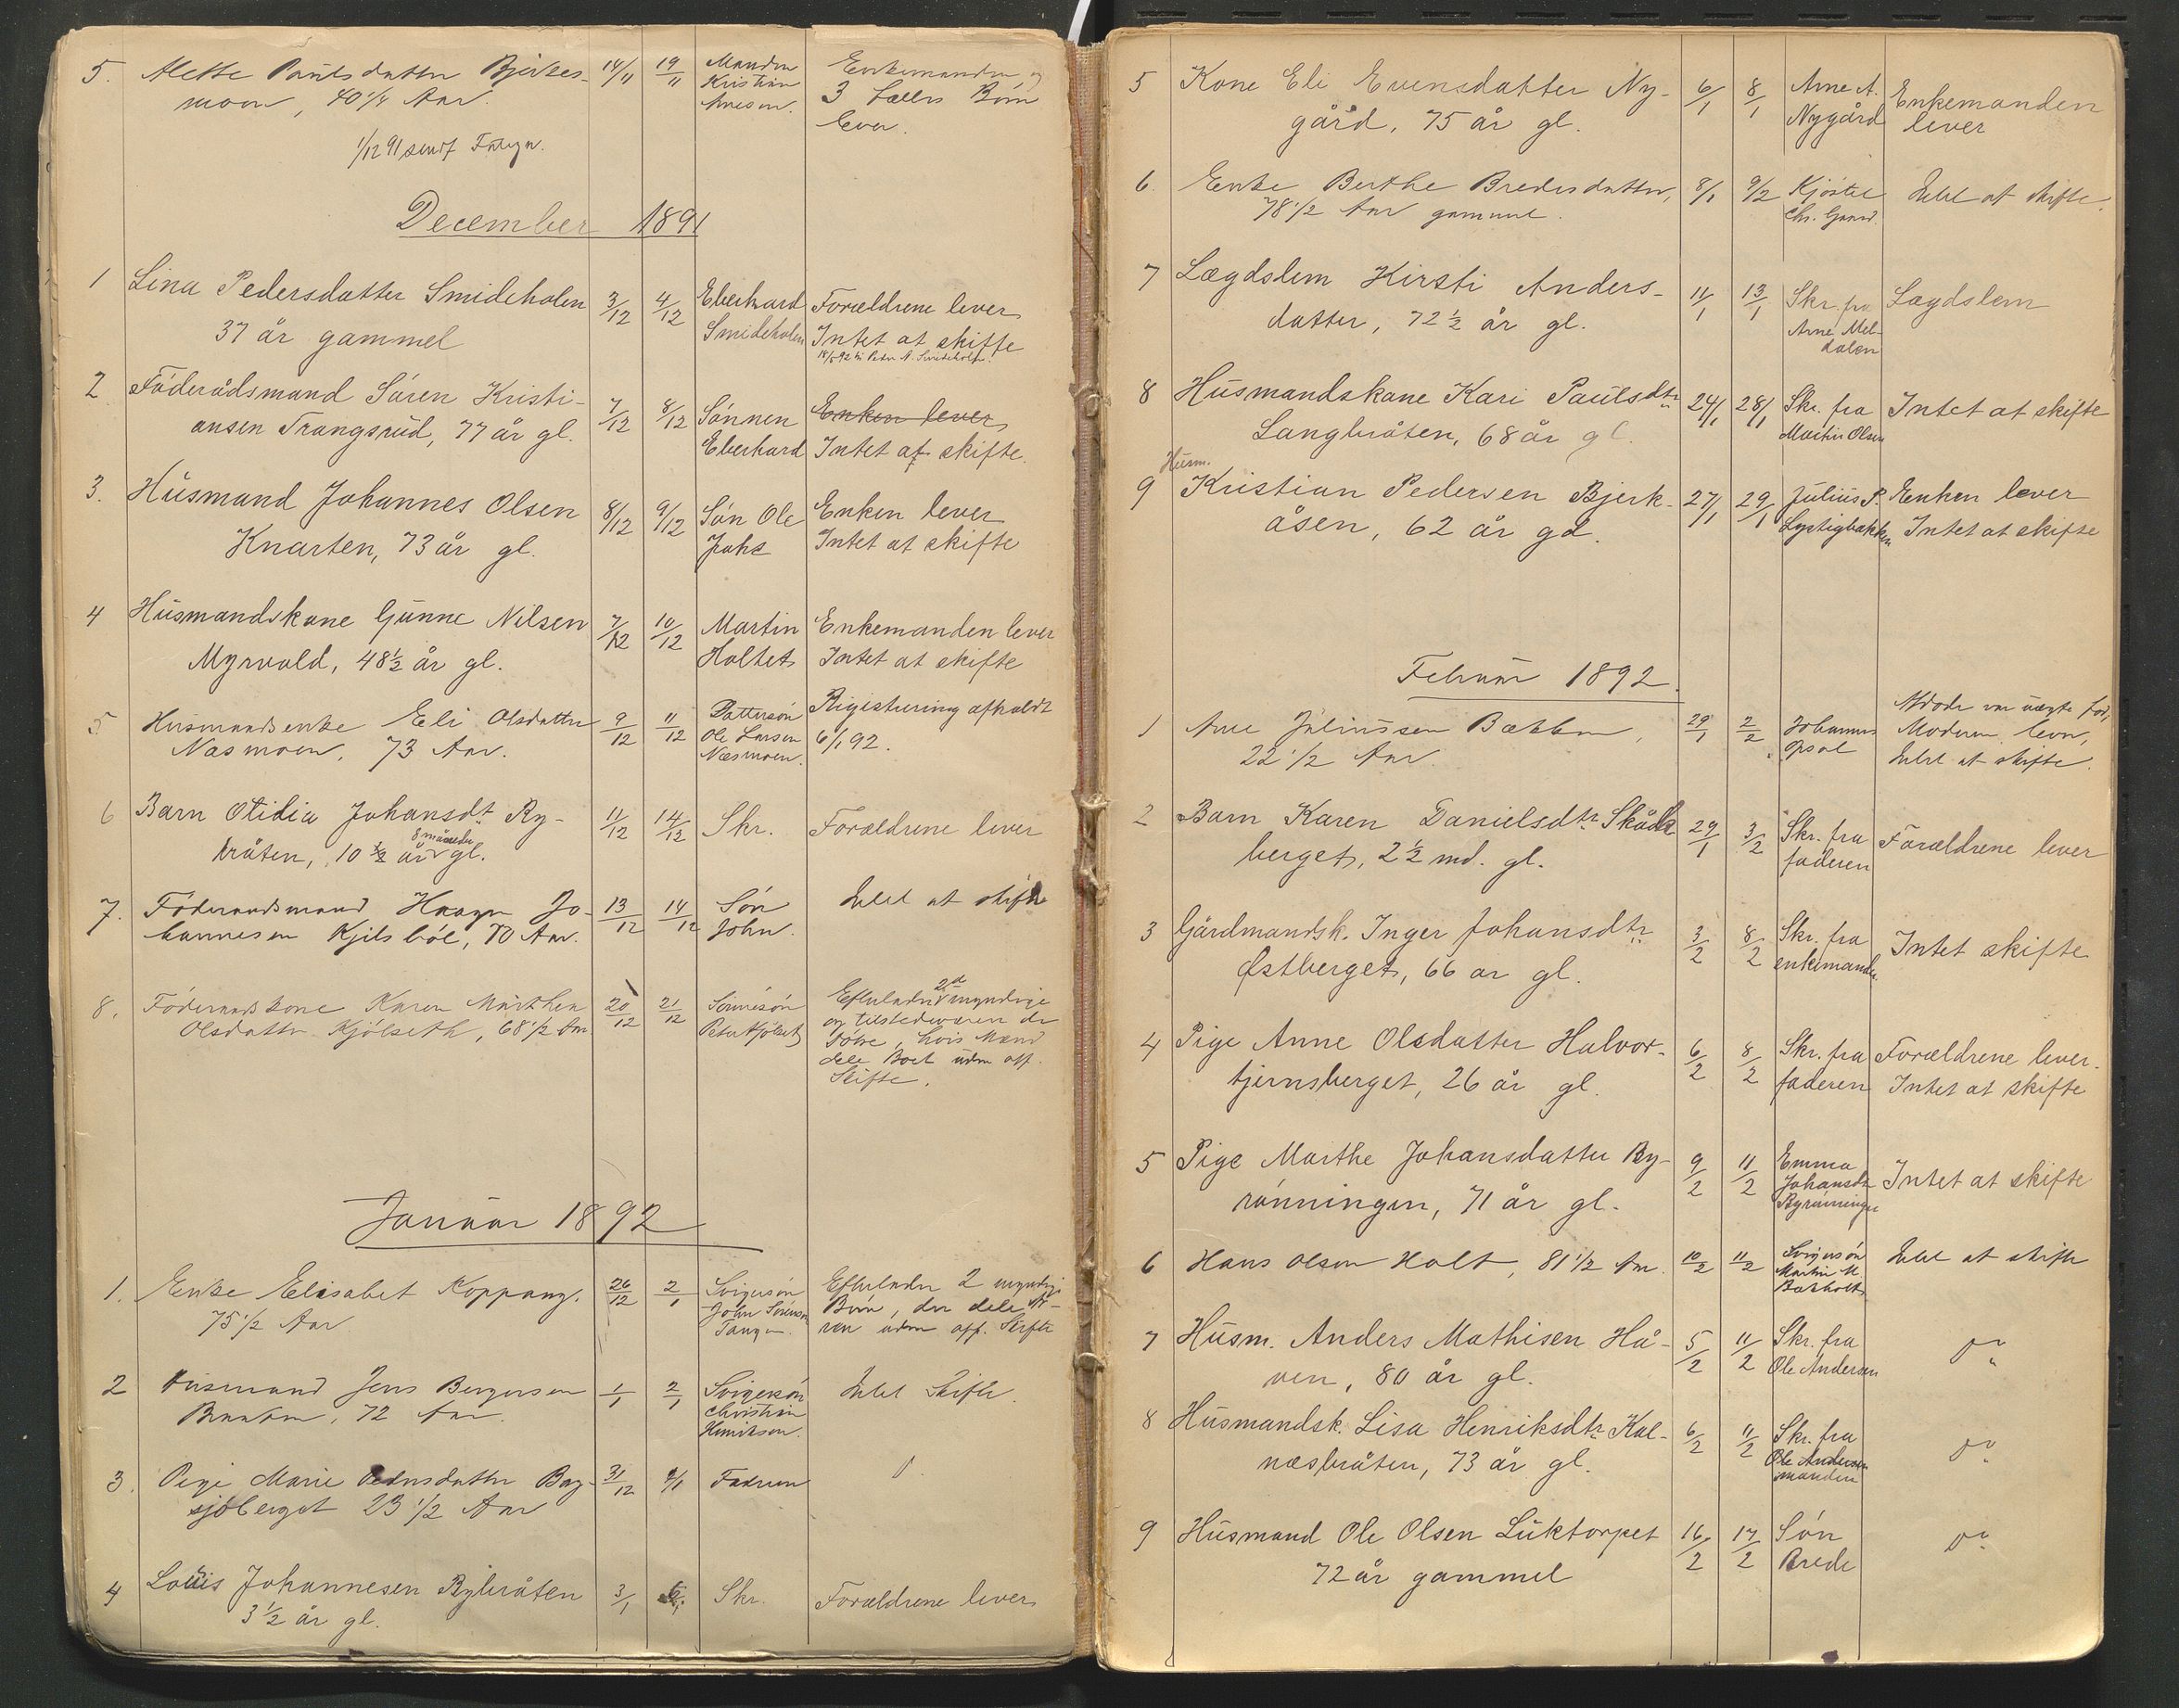 5. Alette Paulsdatter Bjerkes- 14/11 19/11 Manden Enkemanden og
moen, 40 1/4 Aar. Kristian 3 fælles Børn
Arnesen. lever.
1/12 91 sendt
December 1891
1 Lina Pedersdatter Smideholen 3/12 4/12 Eberhard Forældrene lever
37 år gammel Smideholen Intet at skifte
2 Föderådsmand Sören Kristi- 7/12 8/12 Sönnen Enken lever
ansen Trangsrud, 77 år gl. Eberhard Intet at skifte.
3. Husmand Johannes Olsen 8/12 9/12 Sön Ole Enken lever
Knarten, 73 år gl. Johs Intet at skifte
4 Husmandskone Gunne Nilsen 7/12 10/12 Martin Enkemanden lever
Myrvold, 48 1/2 år gl. Holtet Intet at skifte
5 Husmandsenke Eli Olsdatter 9/12 11/12 Dattersön Rigistrering afholdt
Næsmoen, 73 Aar. Ole Larsen 6/1 92.
Næsmoen.
6 Barn Otidia Johansdt. Ry- 11/12 14/12 Skr. Forældrene lever
8 måneder
bråten, 10 1/2 år gl.
7. Föderaadsmand Haagen Jo- 13/12 14/12 Sön Intet at skifte
hannesen Kjilsböl, 70 Aar. John.
8. Föderaadskone Karen Marthea 20/12 21/12 Sönnesön Efterlader 2de myndige
Olsdatter Kjölseth, 68 1/2 Aar Peter Kjölseth og tilstedeværende
Döttre, hvis Mænd
dele Boet uden off.
Skifte.
Januar 1892
1. Enke Elisabet Koppang. 26/12 2/1 Svigersön Efterlader 2 myndige
75 1/2 Aar John Sörensen Börn, der dele Ar-
Tangen. ven uden off. Skifte
2 Husmand Jens Bergersen 1/1 2/1 Svigersön Intet Skifte.
Braaten, 72 Aar. Christian
Henriksen.
3. Pige Marie Pedersdatter Bag- 31/12 4/1 Faderen D
sjöberget 23 1/2 Aar
4 Louis Johannesen Rybråten 3/1 Skr. Forældrene lever
3 1/2 år gl.
5 Kone Eli Evensdatter Ny- 6/1 8/1 Arne A. Enkemanden
gård, 75 år gl. Nygård lever
6. Enke Berthe Bredesdatter, 8/1 9/2 Kjöstel Intet at skifte.
78 1/2 Aar gammel. Chr. Gaard.
7 Lægdslem Kirsti Anders- 11/1 13/1 Skr. fra Lægdslem
datter, 72 1/2 år gl. Arne Mel-
dalen
8 Husmandskone Kari Paulsdtr 24/1 28/1 Skr. fra Intet at skifte
Langbråten, 68 år gl. Martin Olsen
Husm.
9 Kristian Pedersen Bjerk- 27/1 29/1 Julius P. Enken lever
åsen, 62 år gl. Lystigbakken Intet at skifte
Februar 1892.
1 Arne Juliussen Bakken, 29/1 2/2 Johannes Afdöde var uægte föd,
22 1/2 Aar. Opsal Moderen lever,
Intet at skifte.
2 Barn Karen Danielsdtr. Skåda 29/1 3/2 Skr. fra Forældrene lever
berget, 2 1/2 md. gl. faderen
3 Gårdmandsk. Inger Johansdtr 3/2 8/2 Skr. fra Intet skifte
Østberget, 66 ar gl. enkemanden
4 Pige Anne Olsdatter Halvor- 6/2 8/2 Skr. fra Forældrene lever.
tjernsberget, 26 år gl. faderen Intet at skifte
5 Pige Marthe Johansdatter By- 9/2 11/2 Emma Intet at skifte
rönningen, 71 år gl. Johansdtr
Byrönningen
6 Hans Olsen Holt, 81 1/2 Aar. 10/2 11/2 Svigersön Intet at skifte
Martin M
Baksholt
7 Husm. Anders Mathisen Hå- 5/2 11/2 Skr. fra Do
ven, 80 år gl. Ole Andersen
8 Husmandsk. Lisa Henriksdtr. Kal- 6/2 11/2 Skr. fra Do
næsbråten, 73 år gl. Ole Andersen
manden
9 Husmand Ole Olsen Luktorpet 16/2 17/2 Sön Do
72 år gammel Brede